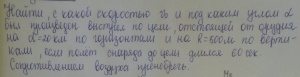 Найти, с какой скоростью v₀ и под каким углом α
был произведен выстрел по цели, отстоящей от орудия
на x=20км по горизонтали и на h=500м по верти-
кали, если полет снаряда до цели длился 60 сек.
Сопротивлением воздуха пренебречь.